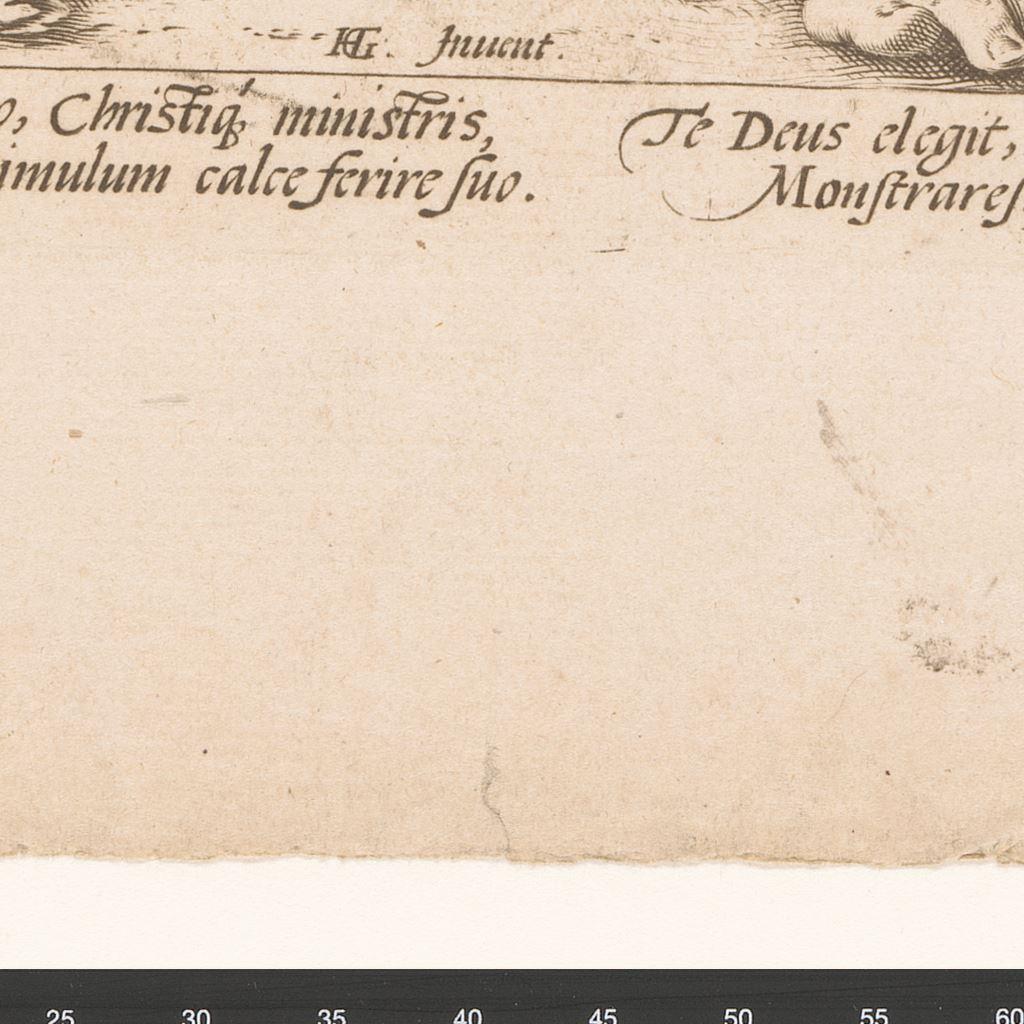 HG. Inuent.
o, Christiq́; ministris,
imulum calce ferire ſuo.
Te Deus elegit,
Monſtrareſ
25 30 35 40 45 50 55 60